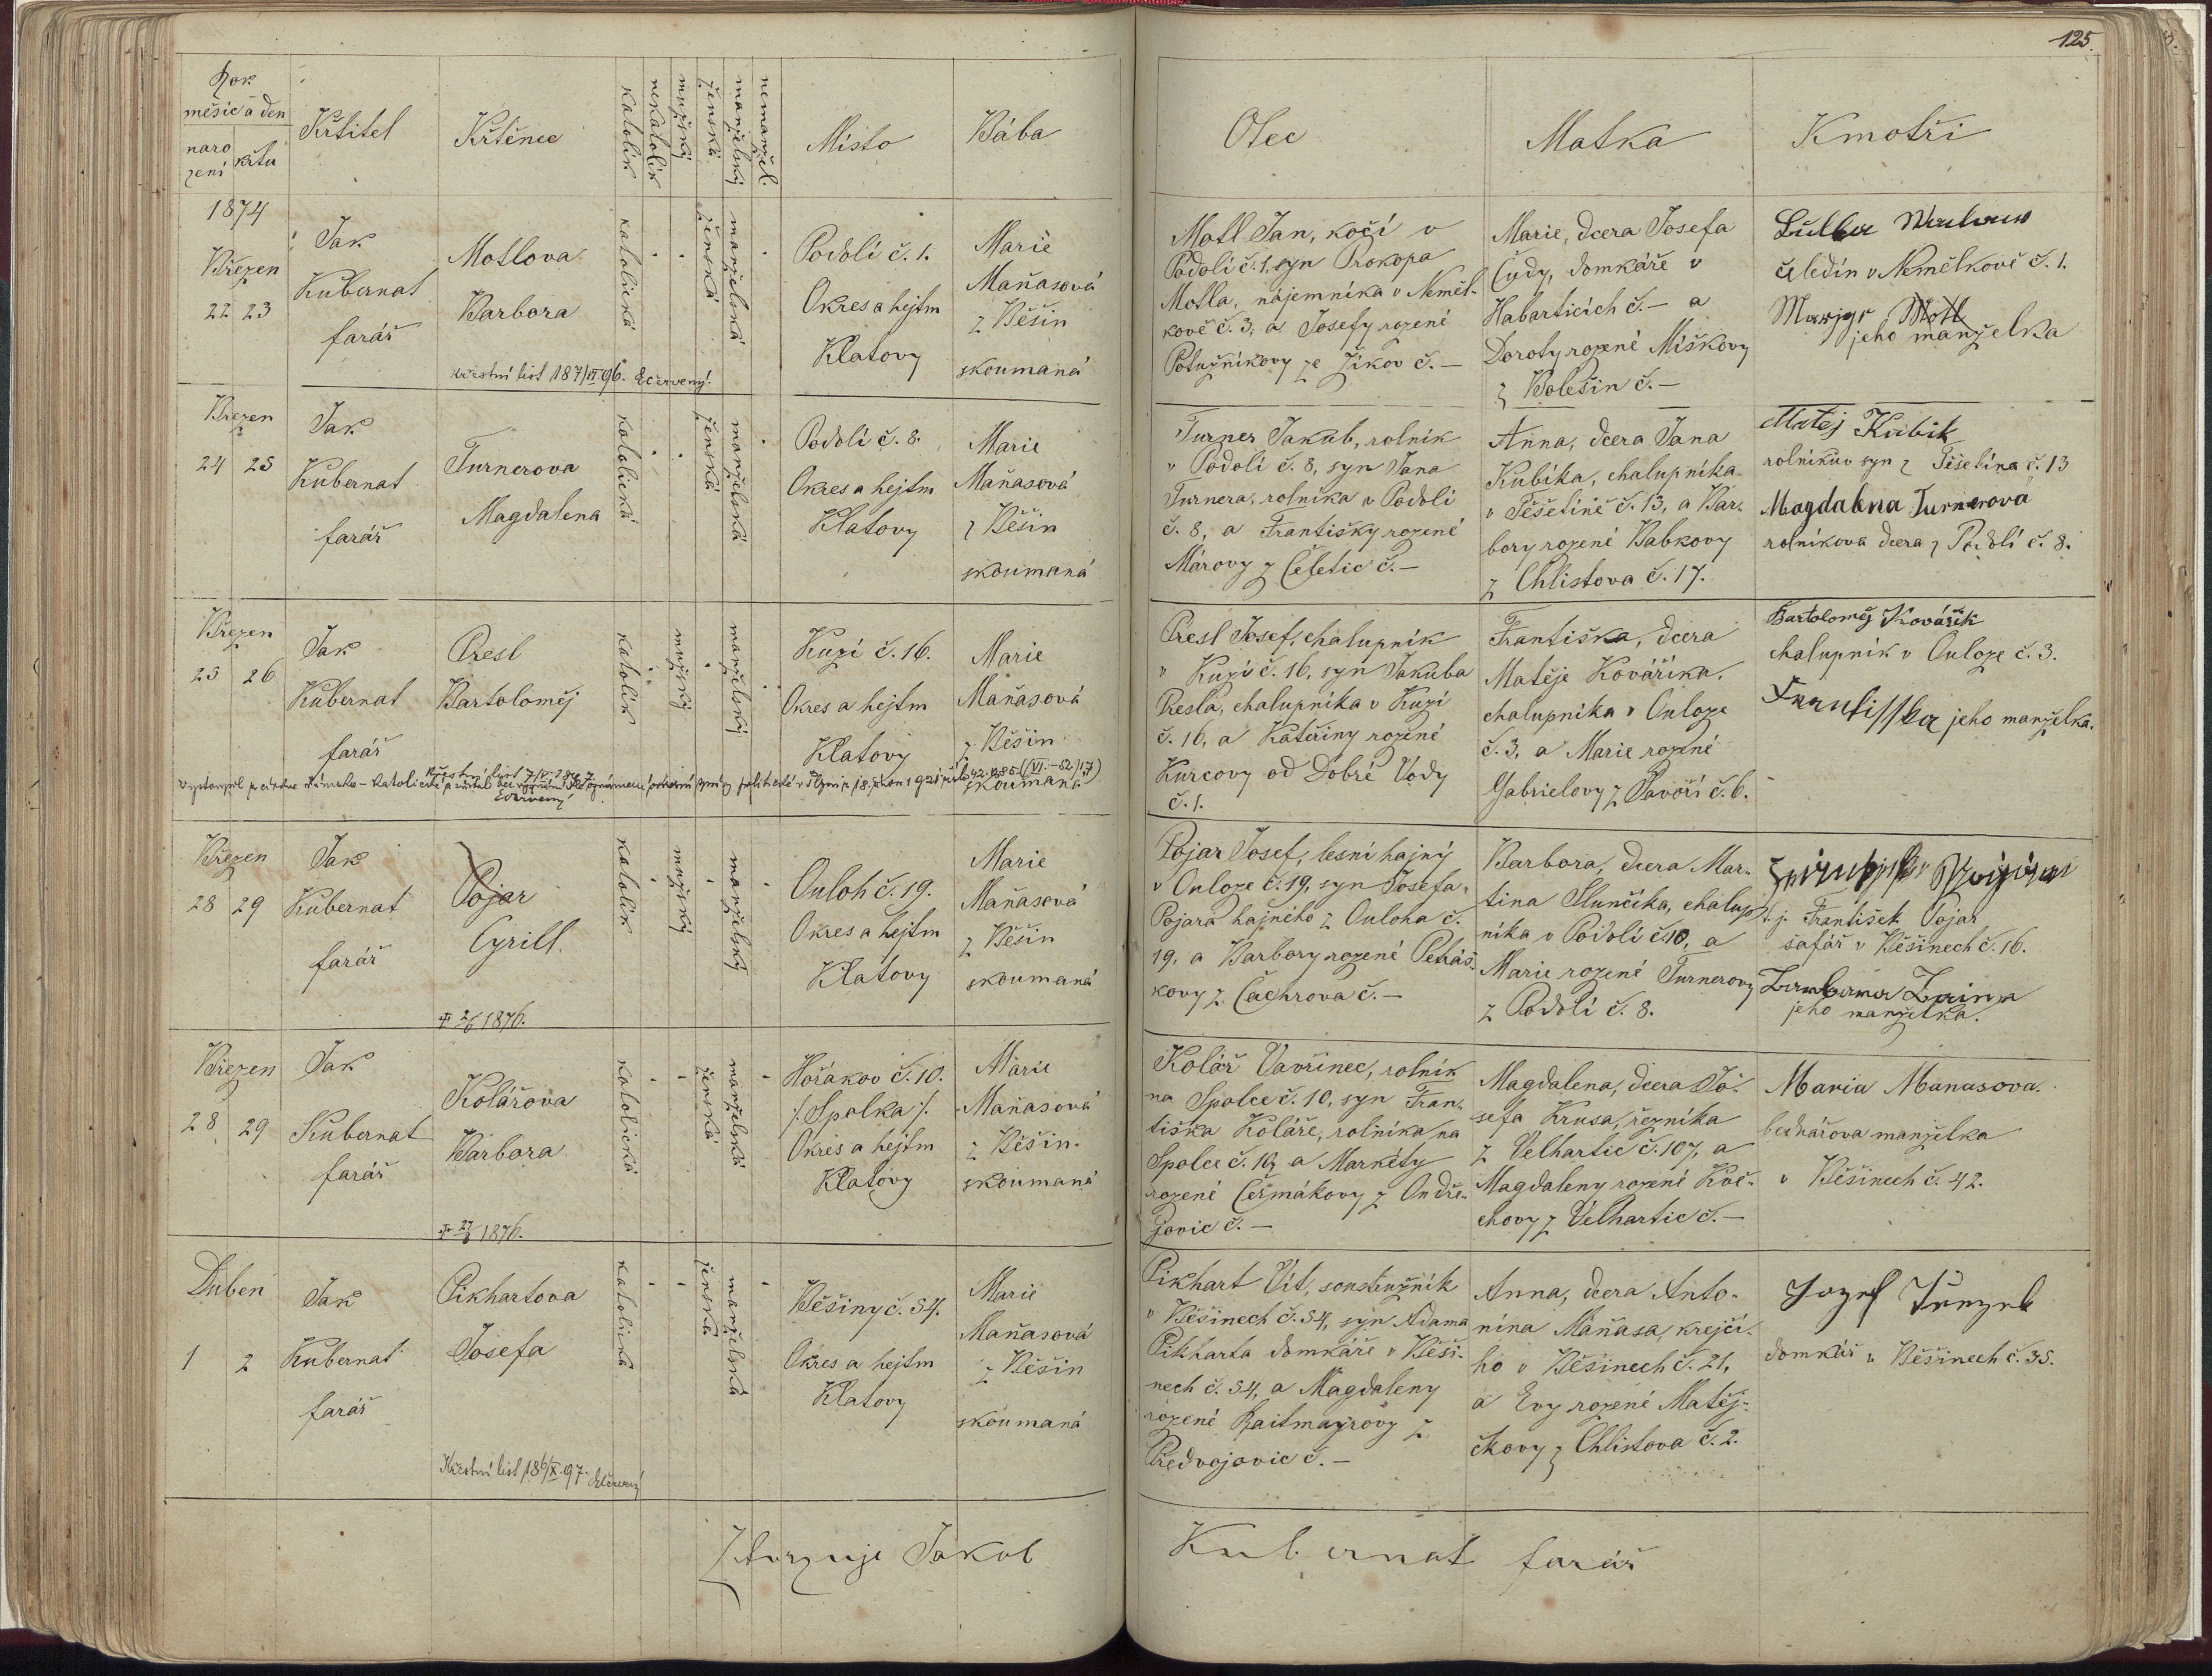 125.
Rok
měsíc a den
naro
zení
křtu
Křtitel
Křtěnec
katolík
nekatolík
mužský
ženská
manželský
nemanžel.
Místo
Bába
Otec
Matka
Kmotři
1874
Březen
22 23
Jak
Kubernat
farář
Motlova
Barbora
katolická
ženská
manželská
Podolí č. 1.
Okres a hejtm
Klatovy
Marie
Maňasová
z Běšin
zkoumaná
Motl Jan, kočí v
Podolí č. 1, syn Prokopa
Motla, nájemníka v Něměl-
kově č. 3, a Josefy rozené
Potužníkovy ze Žíkov č. –
Marie, dcera Josefa
Čudy, domkáře v
Habarticích č. – a
Doroty rozené Miškovy
z Bolešin č. –
čeledín v Němělkově č. 1.
jeho manželka
křestní list 187/VI 96. Ečervený.
Březen
24 25
Jak
Kubernat
farář
Turnerova
Magdalena
katolická
ženská
manželská
Podolí č. 8.
Okres a hejtm
Klatovy
Marie
Maňasová
z Běšin
zkoumaná
Turner Jakub, rolník
v Podolí č. 8, syn Jana
Turnera, rolníka v Podolí
č. 8, a Františky rozené
Márovy z Čeletic č. –
Anna, dcera Jana
Kubíka, chalupníka
v Těšetíně č. 13, a Bar-
bory rozené Babkovy
z Chlistova č. 17.
Matěj Kubík
rolníkův syn z Těšetína č. 13
Magdalena Turnerová
rolníkova dcera z Podolí č. 8.
Březen
25 26
Jak
Kubernat
farář
Presl
Bartoloměj
katolík
mužský
manželský
Kuzí č. 16.
Okres a hejtm
Klatovy
Marie
Maňasová
z Běšin
zkoumaná
Presl Josef, chalupník
v Kuzí č. 16, syn Jakuba
Presla, chalupníka v Kuzí
č. 16, a Kateřiny rozené
Kurcovy od Dobré Vody
č. 1.
Františka, dcera
Matěje Kovářika,
chalupníka v Ouloze
č. 3, a Marie rozené
Gabrielovy z Javoří č. 6.
Bartoloměj Kovářik
chalupník v Ouloze č. 3.
Frantisska jeho manželka.
Březen
28 29
Jak
Kubernat
farář
Pojar
Cyrill.
katolík
mužský
manželský
Ouloh č. 19.
Okres a hejtm
Klatovy
Marie
Maňasová
z Běšin
zkoumaná
Pojar Josef, lesní hajný
v Ouloze č. 19, syn Josefa
Pojara hajného z Ouloha č.
19, a Barbory rozené Petráš-
kovy z Čachrova č. –
Barbora, dcera Mar-
tina Slunčíka, chalup-
níka v Podolí č. 10, a
Marie rozené Turnerovy
z Podolí č. 8.
t. j. František Pojar
šafář v Běšinech č. 16.
jeho manželka.
✝ 2/6 1876.
Březen
28 29
Jak
Kubernat
farář
Kolářova
Barbora
katolická
ženská
manželská
Hořákov č. 10.
/: Spolka :/
Okres a hejtm
Klatovy
Marie
Maňasová
z Běšin
zkoumaná
Kolář Vavřinec, rolník
na Spolce č. 10, syn Fran-
tiška Koláře, rolníka na
Spolce č. 10, a Markéty
rozené Čežmákovy z Ondře-
jovic č. –
Magdalena, dcera Jo-
sefa Krusa, řezníka
z Velhartic č. 107, a
Magdaleny rozené Kvě-
chovy z Velhartic č. –
Maria Manasova
bednářova manželka
v Běšinech č. 42.
Duben
1 2
Jak
Kubernat
farář
Pikhartova
Josefa
katolická
ženská
manželská
Běšiny č. 54.
Okres a hejtm
Klatovy
Marie
Maňasová
z Běšin
zkoumaná
Pikhart Vít, soustružník
v Běšinech č. 54, syn Adama
Pikharta domkáře v Běši-
nech č. 54, a Magdaleny
rozené Raitmayrovy z
Předvojovic č. –
Anna, dcera Anto-
nína Maňasa, krejčí-
ho v Běšinech č. 21,
a Evy rozené Matěj-
čkovy z Chlistova č. 2.
domkář v Běšinech č. 35.
Křestní list 186/X. 97.
Jakob
Kubernat farář